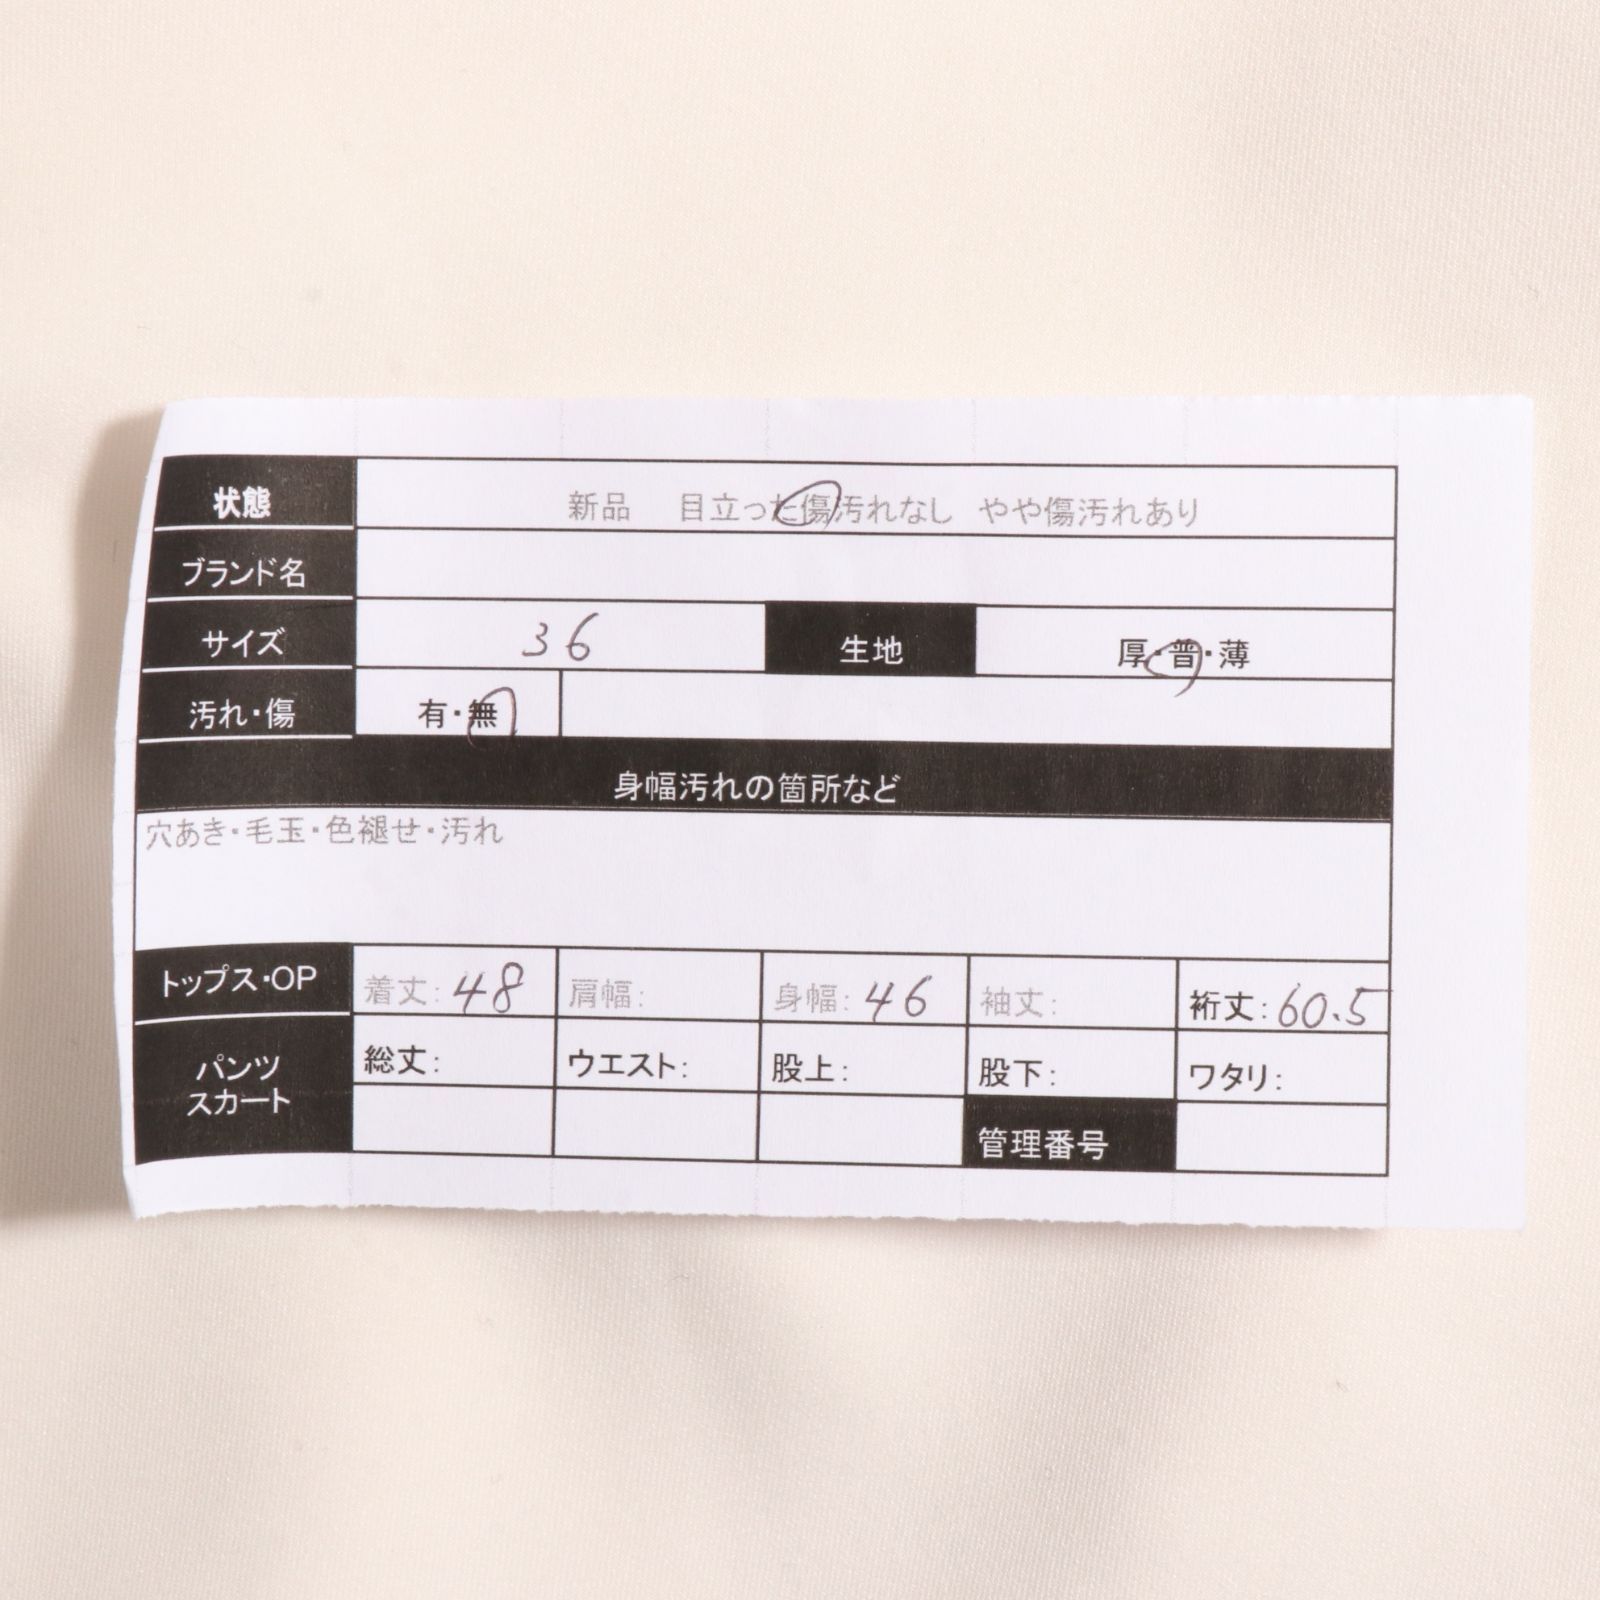 状態 新品 目立った傷汚れなし やや傷汚れあり
ブランド名
サイズ 36 生地 厚・普・薄
汚れ・傷 有・無
身幅汚れの箇所など
穴あき・毛玉・色褪せ・汚れ
トップス・OP 着丈: 48 肩幅: 身幅: 46 袖丈: 裄丈: 60.5
パンツ 総丈: ウエスト: 股上: 股下: ワタリ:
スカート
管理番号